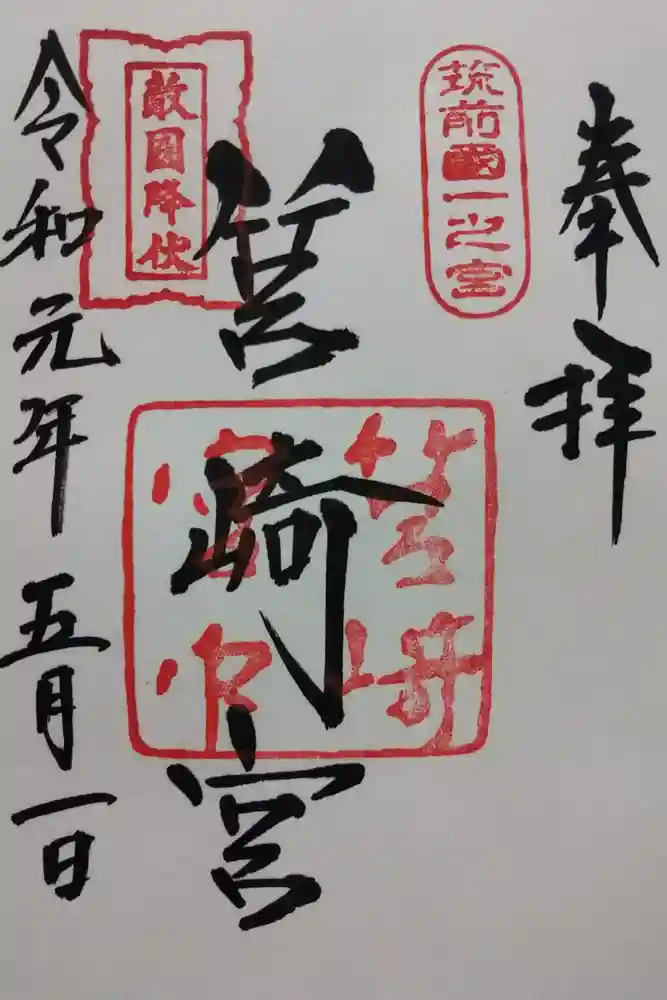 奉拝
筑前國一之宮
筥崎宮
敵国降伏
令和元年五月一日